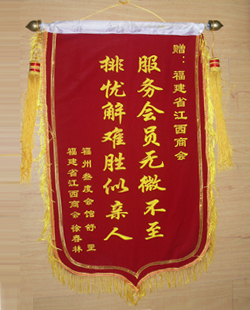 赠：福建省江西商会
服务会员无微不至
排忧解难胜似亲人
福州叁度会馆舒星
福建省江西商会徐春林